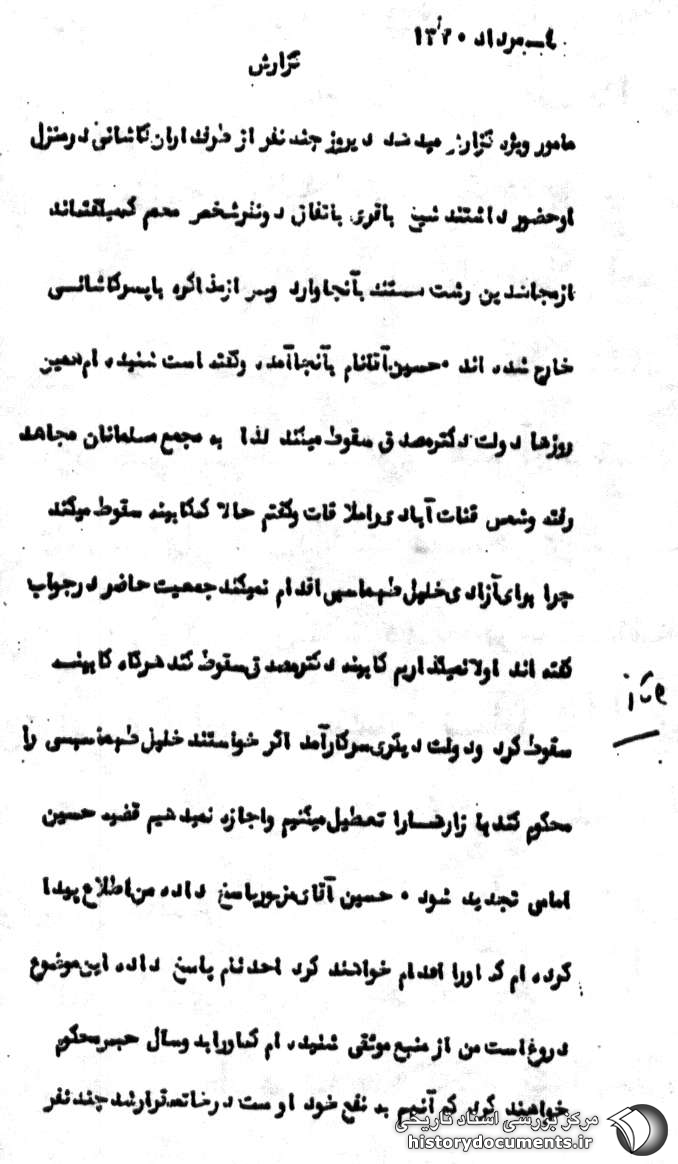 ٤ـ مرداد ۱۳۳۰
گزارش
مامور ویژه گزارش میدهد دیروز چند نفر از طرفداران کاشانی درمنزل
اوحضور داشتند شیخ باقری باتفاق دونفرشخص معمم کهمیگفتهاند
ازمجاهدین رشت هستند بآنجا وارد وپس ازمذاکره باپسرکاشانسی
خارج شده اند ۰ حسین آقانام بآنجا آمده وگفته است شنیده ام همین
روزها دولت دکترمصدق سقوط میکند لذا به مجمع مسلمانان مجاهد
رفته وشمس قنات آبادی راملاقات وگفتم حالا که کابینه سقوط میکند
چرا برای آزادی خلیل طهماسبی اقدام نمیکند جمعیت حاضر درجواب
گفته اند اولا نمیگذاریم کابینه دکترمصدق سقوط کند هرگاه کابینسه
سقوط کرد ودولت دیگری سرکارآمد اگر خواستند خلیل طهماسبسی را
محکوم کنند بازارهسارا تعطیل میکنیم واجازه نمیدهیم قضیه حسین
امامی تجدید شود ۰ حسین آقای مزبور پاسخ داده من اطلاع پیدا
کرده ام که اورا اعدام خواهند کرد احدنام پاسخ داده این موضوع
دروغ است من از منبع موثقی شنیده ام که اورا بدوسال حبس محکوم
خواهند کرد که آنهم به نفع خود اوست درخاتمه قرارشد چند نفر
مرکز بررسی اسناد تاریخی
historydocuments.ir